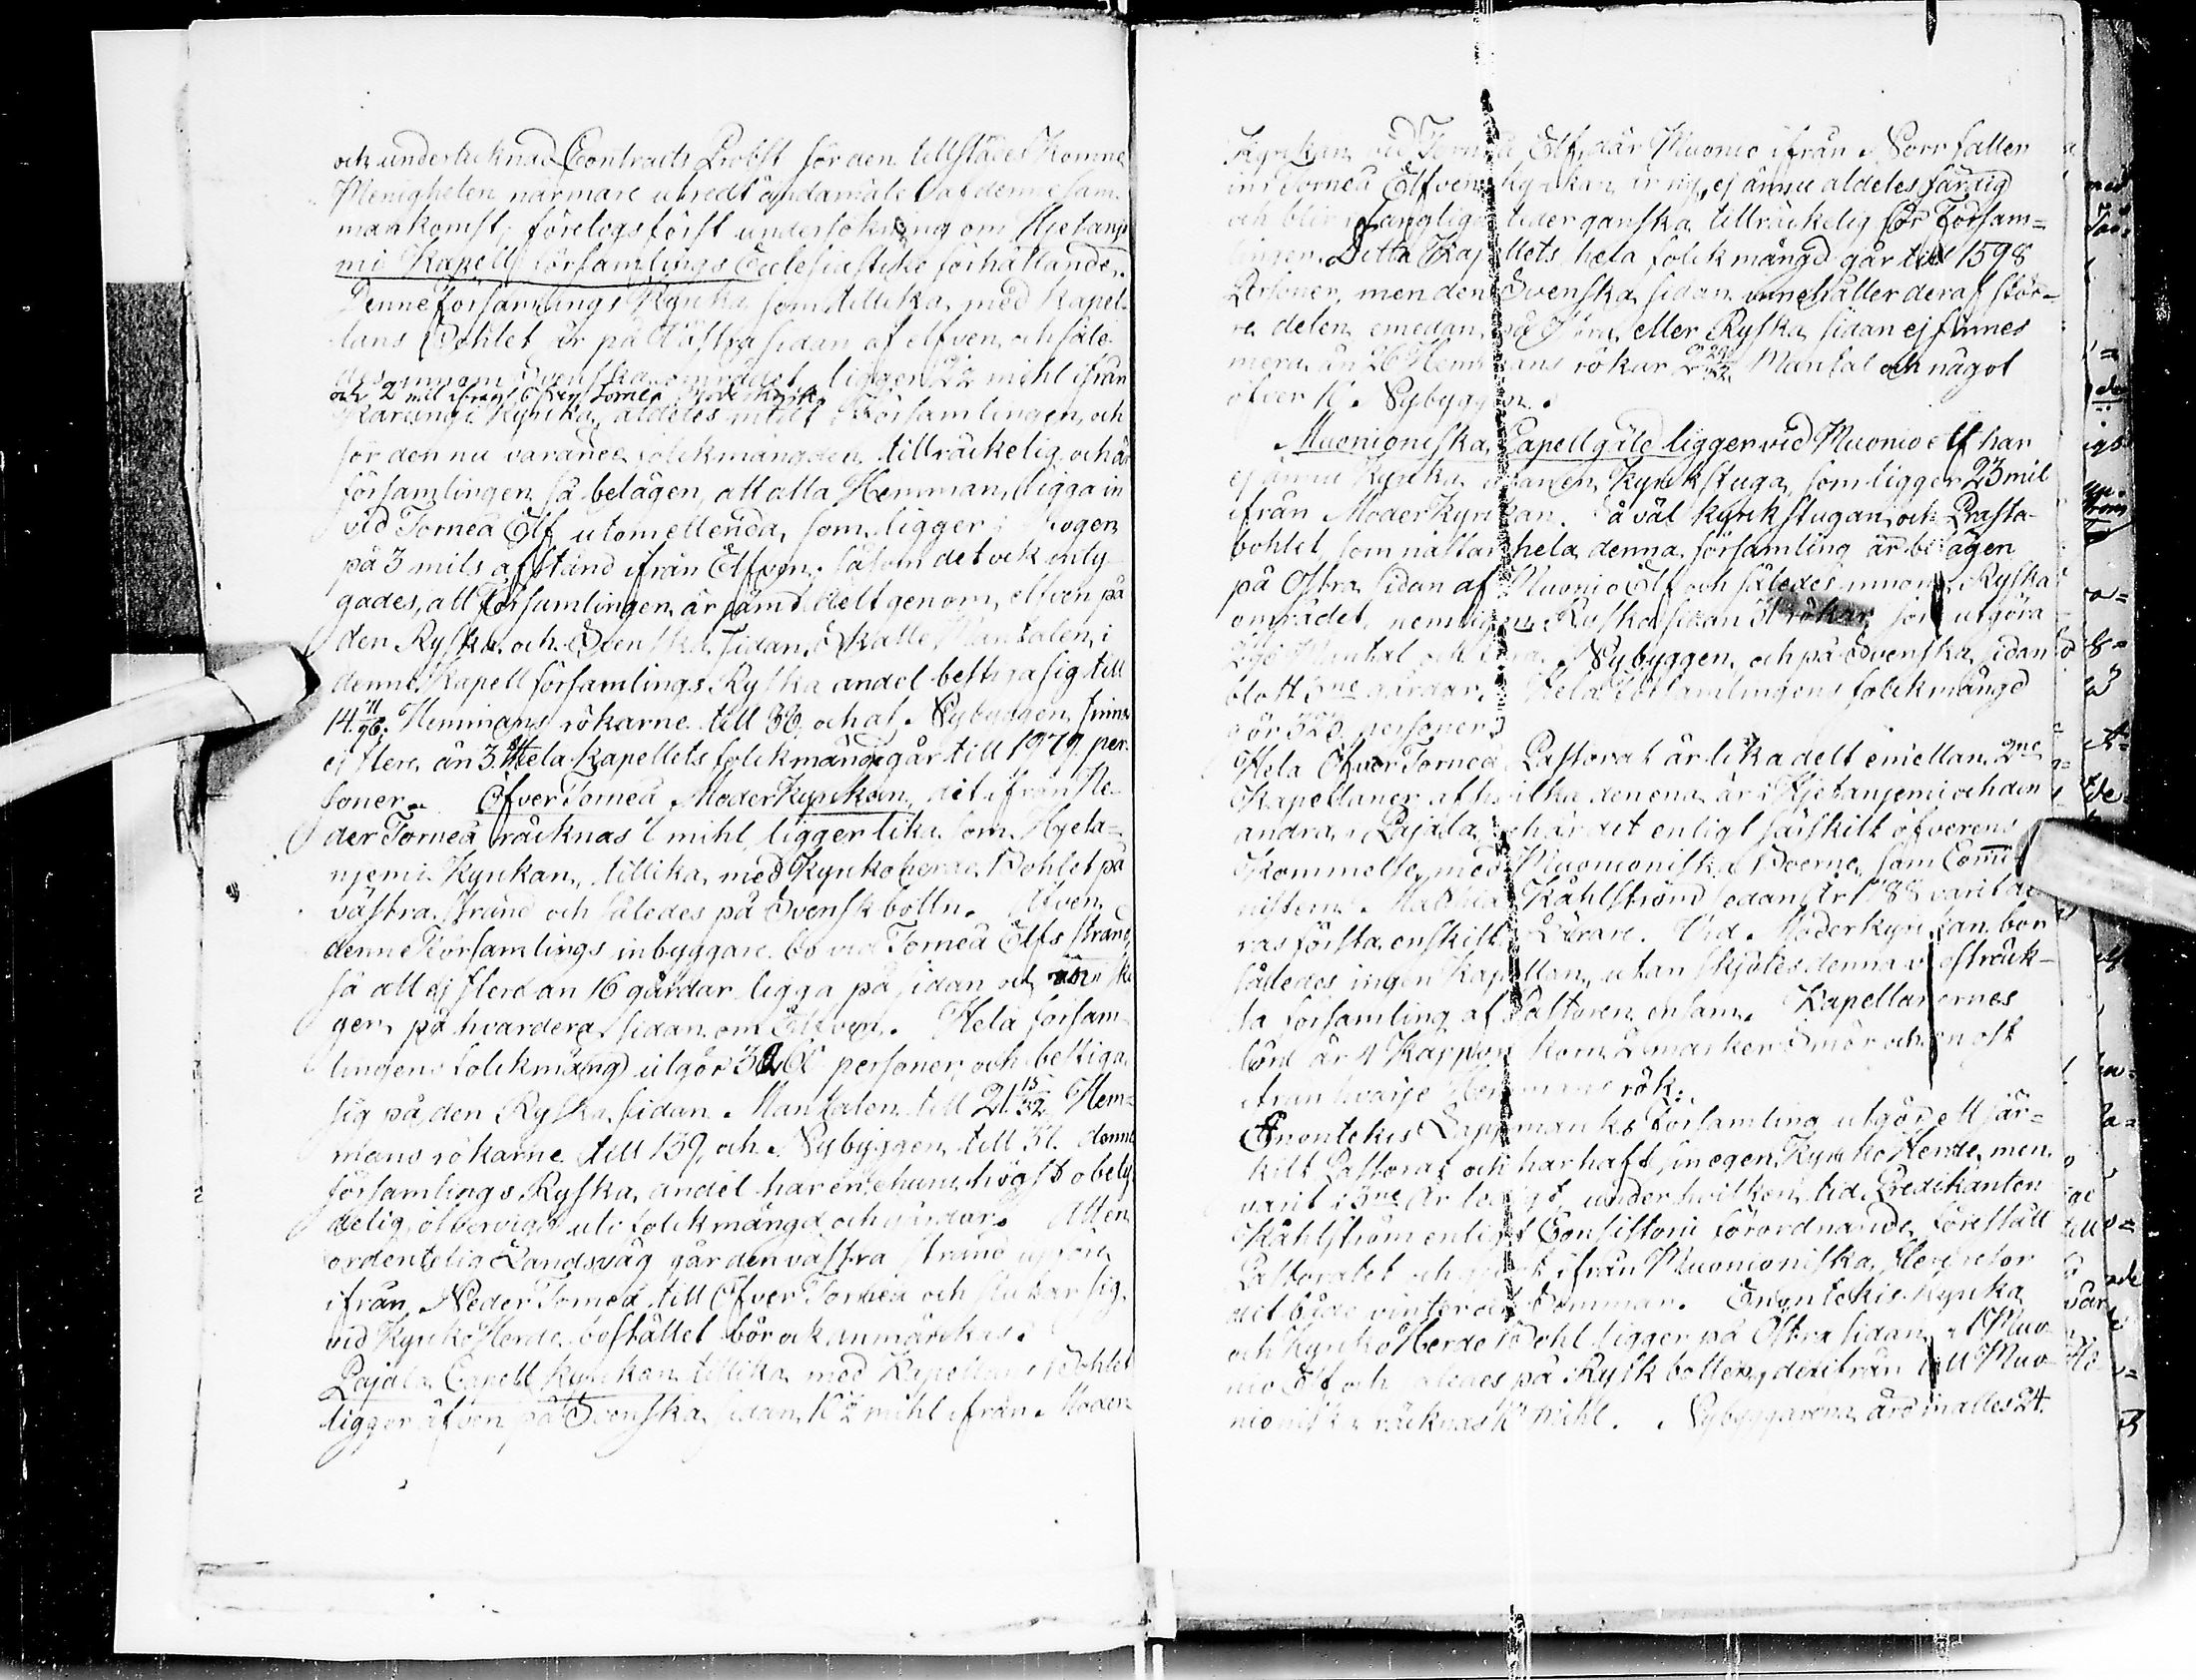 och undertecknad Contracts Probst för den tillstädes komne
Menigheten närmare utredt ändamålet af denne sam¬
mankomst, företogs först undersökning om Hjetanje
mi Kapells församlings Ecclesiastike förhållande.
Denne församlings Kyrka som tillika med kapel¬
lans Bohlet är på Västra sidan af elfven, och såle
des innom Svenska området, ligger 2½ mihl ifrån
och 2 mil ifrån Öfver Torneå Moderkyrka
Karungi Kyrka, aldeles midt i Församlingen, och
för den nu varande folckmängden tillräckelig, och är
församlingen så belägen, att alla Hemman ligga in
vid Torneå Elf utom ett enda, som ligger i skogen
på 3 mils afstånd ifrån Elfven. Såsom det ock inty¬
gades, att Församlingen är jämt delt genom elfven på
den Ryska och Svenska sidan. Skatte Mantalen i
denne Kapell församlings Ryska andel bestiga sig till
14 11/96, Hemmans rökarne till 36, och af Nybyggen finnes
ej flere än 3. Hela Kapellets folckmängd går till 1979 per¬
soner. Öfver Torneå Moderkyrkan, dit ifrån Ne¬
der Torneå räcknas 7 mihl, ligger lika som Hjeta=
njemi Kyrkan, tillika med Kyrkoherde Bohlet på
västra strand och således på Svensk bottn. Äfven
denne Församlings inbyggare bo vid Torneå Elfs strand,
så att ej flere än 16 gårdar ligga på sidan och inn i sko
gen på hvardera sidan om Elfven. Hela försam¬
lingens folckmängd utgör personer, och bestiga
sig på den Ryska sidan Mantalen till 21 15/32 Hem=
mans rökarne till 139, och Nybyggen till 31. denne
församlings Ryska andel har en ehuru högst obety
delig öfvervigt uti folckmängd och gårdar. Att en
ordentelig Landsväg går den västra strand uppföre
ifrån Neder Torneå till Öfver Torneå och slutar sig
vid Kyrko Herde bostället bör ock anmärckas.
Pajala Capell kyrkan tillika med Kapellans Bohlet
ligger äfven på Svenska sidan, 10½ mihl ifrån Moder
Kyrckan vid Torneå Elf, där Muonio ifrån Norr faller
in i Torneå Elfven. Kyrckan är ny, ej ännu aldeles färdig
och blir i langliga tider ganska tillräckelig för Försam=
lingen. Detta Kapellets hela folckmängd går till 1598
Personer, men den Svenska sidan innehåller deraf stör¬
re delen, emedan på Östra eller Ryska sidan ej finnes
mera än 26 Hemmans rökar Mantal och något
öfver Nybyggen.
Muonioniska Capellgäld ligger vid Muonio elf har
ej ännu Kyrka utan en Kyrckstuga, som ligger 23 mil
ifrån Moderkyrkan. Så väl kyrckstugan, och Prästa¬
bohlet, som nästan hela denna församling är belägen
på Östra sidan af Muonio Elf och således innom Ryska
området, nemligen Ryska sidan rökar, som utgöra
Mantal och Nybyggen, och på Svenska sidan
blott 3ne gårdar. Hela församlingens folckmängd
är 323 personer.
Hela Öfver Torneå Pastorat är lika delt emellan 2ne
Kapellaner af hvilka den ena är i Hjetanjemi och den
andra i Pajala, och har det enligt särskilt öfverens
kommelse med Muonioniska Boerne, som Commi
nistern Mathias Kåhlström sedan År 1788 varit de
ras första enskilt Lärare. Vid Moderkyrckan bor
således ingen Kapellan, utan skjötes denna vidsträck¬
ta församling af Pastoren ensam. Kapellanernes
lön är 4 Kappor korn, 2 marker Smör och en ost
ifrån hvarje Hemmans rök.
Enontekis Lappmarks Församling utgör ett sär=
kilt Pastorat och har haft sin egen Kyrko Herde, men
varit i 3ne År ledigt, under hvilken tid Predikanten
Kåhlström enligt Consistorii förordnande, förestått
Pastoratet och gjort ifrån Muonioniska, flere resor
dit både vinter och Sommar. Enontekis Kyrka
och Kyrko Herde Bohl ligger på Östra sidan af Muo
nio Elf och således på Rysk botten, derifrån till Muo
nioniska räcknas mihl. Nybyggarena äro inalles 24.